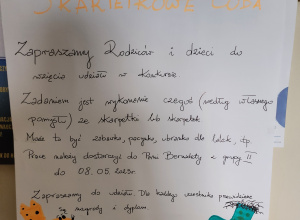 SKARPETKOWE CUDA
Zapraszamy Rodziców i dzieci do
wzięcia udziału w Konkursie
Zadaniem jest wykonanie czegoś (według własnego
pomysłu) ze skarpetki lub skarpetek
Może to być zabawka, pacynka, ubranko dla lalek, itp
Prace należy dostarczyć do Pani Bernadety z grupy II
do 08.05.
Zapraszamy do udziału. Dla każdego uczestnika przewidziane
nagrody i dyplom